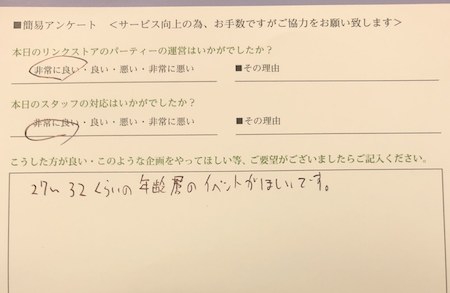 ■簡易アンケート ＜サービス向上の為、お手数ですがご協力をお願い致します＞
本日のリンクストアのパーティーの運営はいかがでしたか？
非常に良い・良い・悪い・非常に悪い ■その理由
本日のスタッフの対応はいかがでしたか？
非常に良い・良い・悪い・非常に悪い ■その理由
こうした方が良い・このような企画をやってほしい等、ご要望がございましたらご記入ください。
27〜32くらいの年齢層のイベントがほしいです。